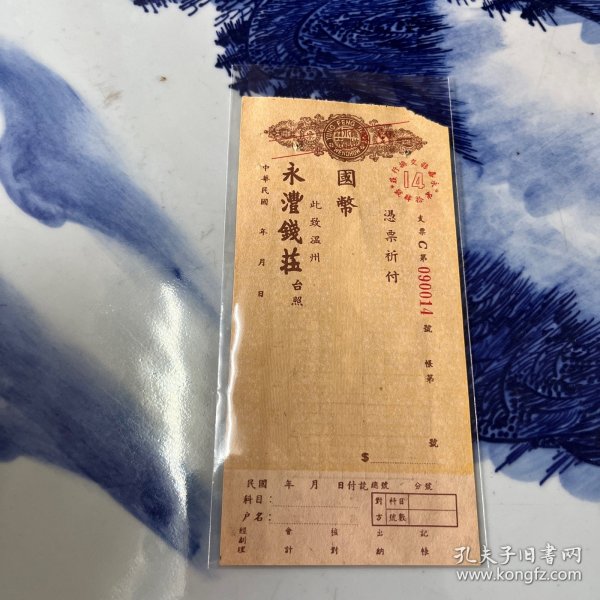 支票C第090014號 帳第 號
憑票祈付
國幣
$
此致溫州
永灃錢莊台照
中華民國 年 月 日
14
民國 年 月 日付訖總號 分號
科目：
戶名：
對方 科目 號數
經副理 會計 核對 出納 記帳
孔夫子旧书网
www.kongfz.com